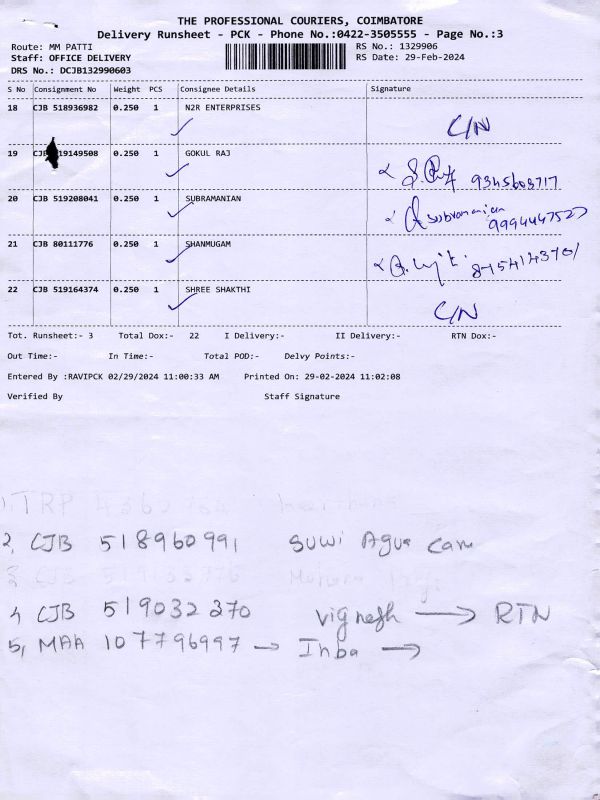 THE PROFESSIONAL COURIERS, COIMBATORE
Delivery Runsheet - PCK - Phone No.:0422-3505555 - Page No.:3
Route: MM PATTI RS No.: 1329906
Staff: OFFICE DELIVERY RS Date: 29-Feb-2024
DRS No.: DCJB132990603
S No Consignment No Weight PCS Consignee Details Signature
18 CJB 518936982 0.250 1 N2R ENTERPRISES C/N
19 19149508 0.250 1 GOKUL RAJ 9345603717
20 CJB 519208041 0.250 1 SUBRAMANIAN Subramanian 9994447527
21 CJB 80111776 0.250 1 SHANMUGAM
22 CJB 519164374 0.250 1 SHREE SHAKTHI C/N
Tot. Runsheet:- 3 Total Dox:- 22 I Delivery:- II Delivery:- RTN Dox:-
Out Time:- In Time:- Total POD:- Delvy Points:-
Entered By :RAVIPCK 02/29/2024 11:00:33 AM Printed On: 29-02-2024 11:02:08
Verified By Staff Signature
TRP
2, CJB 518960991 Suwi Agua Cam
CJB
4, CJB 519032370 Vignesh → RTN
5, MAA 107796997 → Inba →